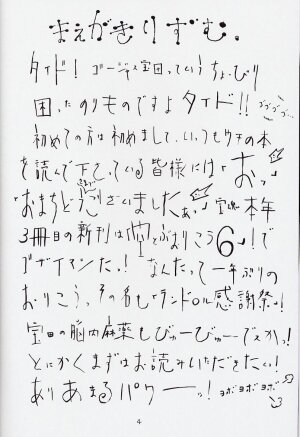 まえがきりずむ。
タイド! ゴージャス宝田っていうちょっぴり
困ったのりものですよタイド!! ゴゴゴゴ…
初めての方は初めまして、いっつもウチの本
を読んで下さっている皆様には「おっ」
「おまちどうございましたぁっ」宝魂 本年
3冊目の新刊は「おりこう6」!で
ございマンだっ! なんたって一年ぶりの
おりこうっ、その名もドル感謝祭っ!
宝田の脳内麻薬しびゅーびゅーでえかっ!
とにかくまずはお読みいただきたい!
ありあまるパワーーっ! ヨボヨボヨボ
4